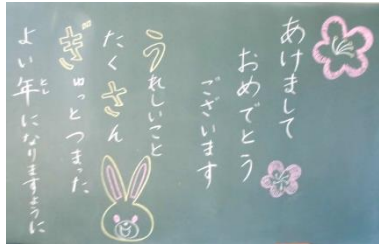 あけまして
おめでとう
ございます
うれしいこと
たくさん
ぎゅっとつまった
よい年になりますように
とし